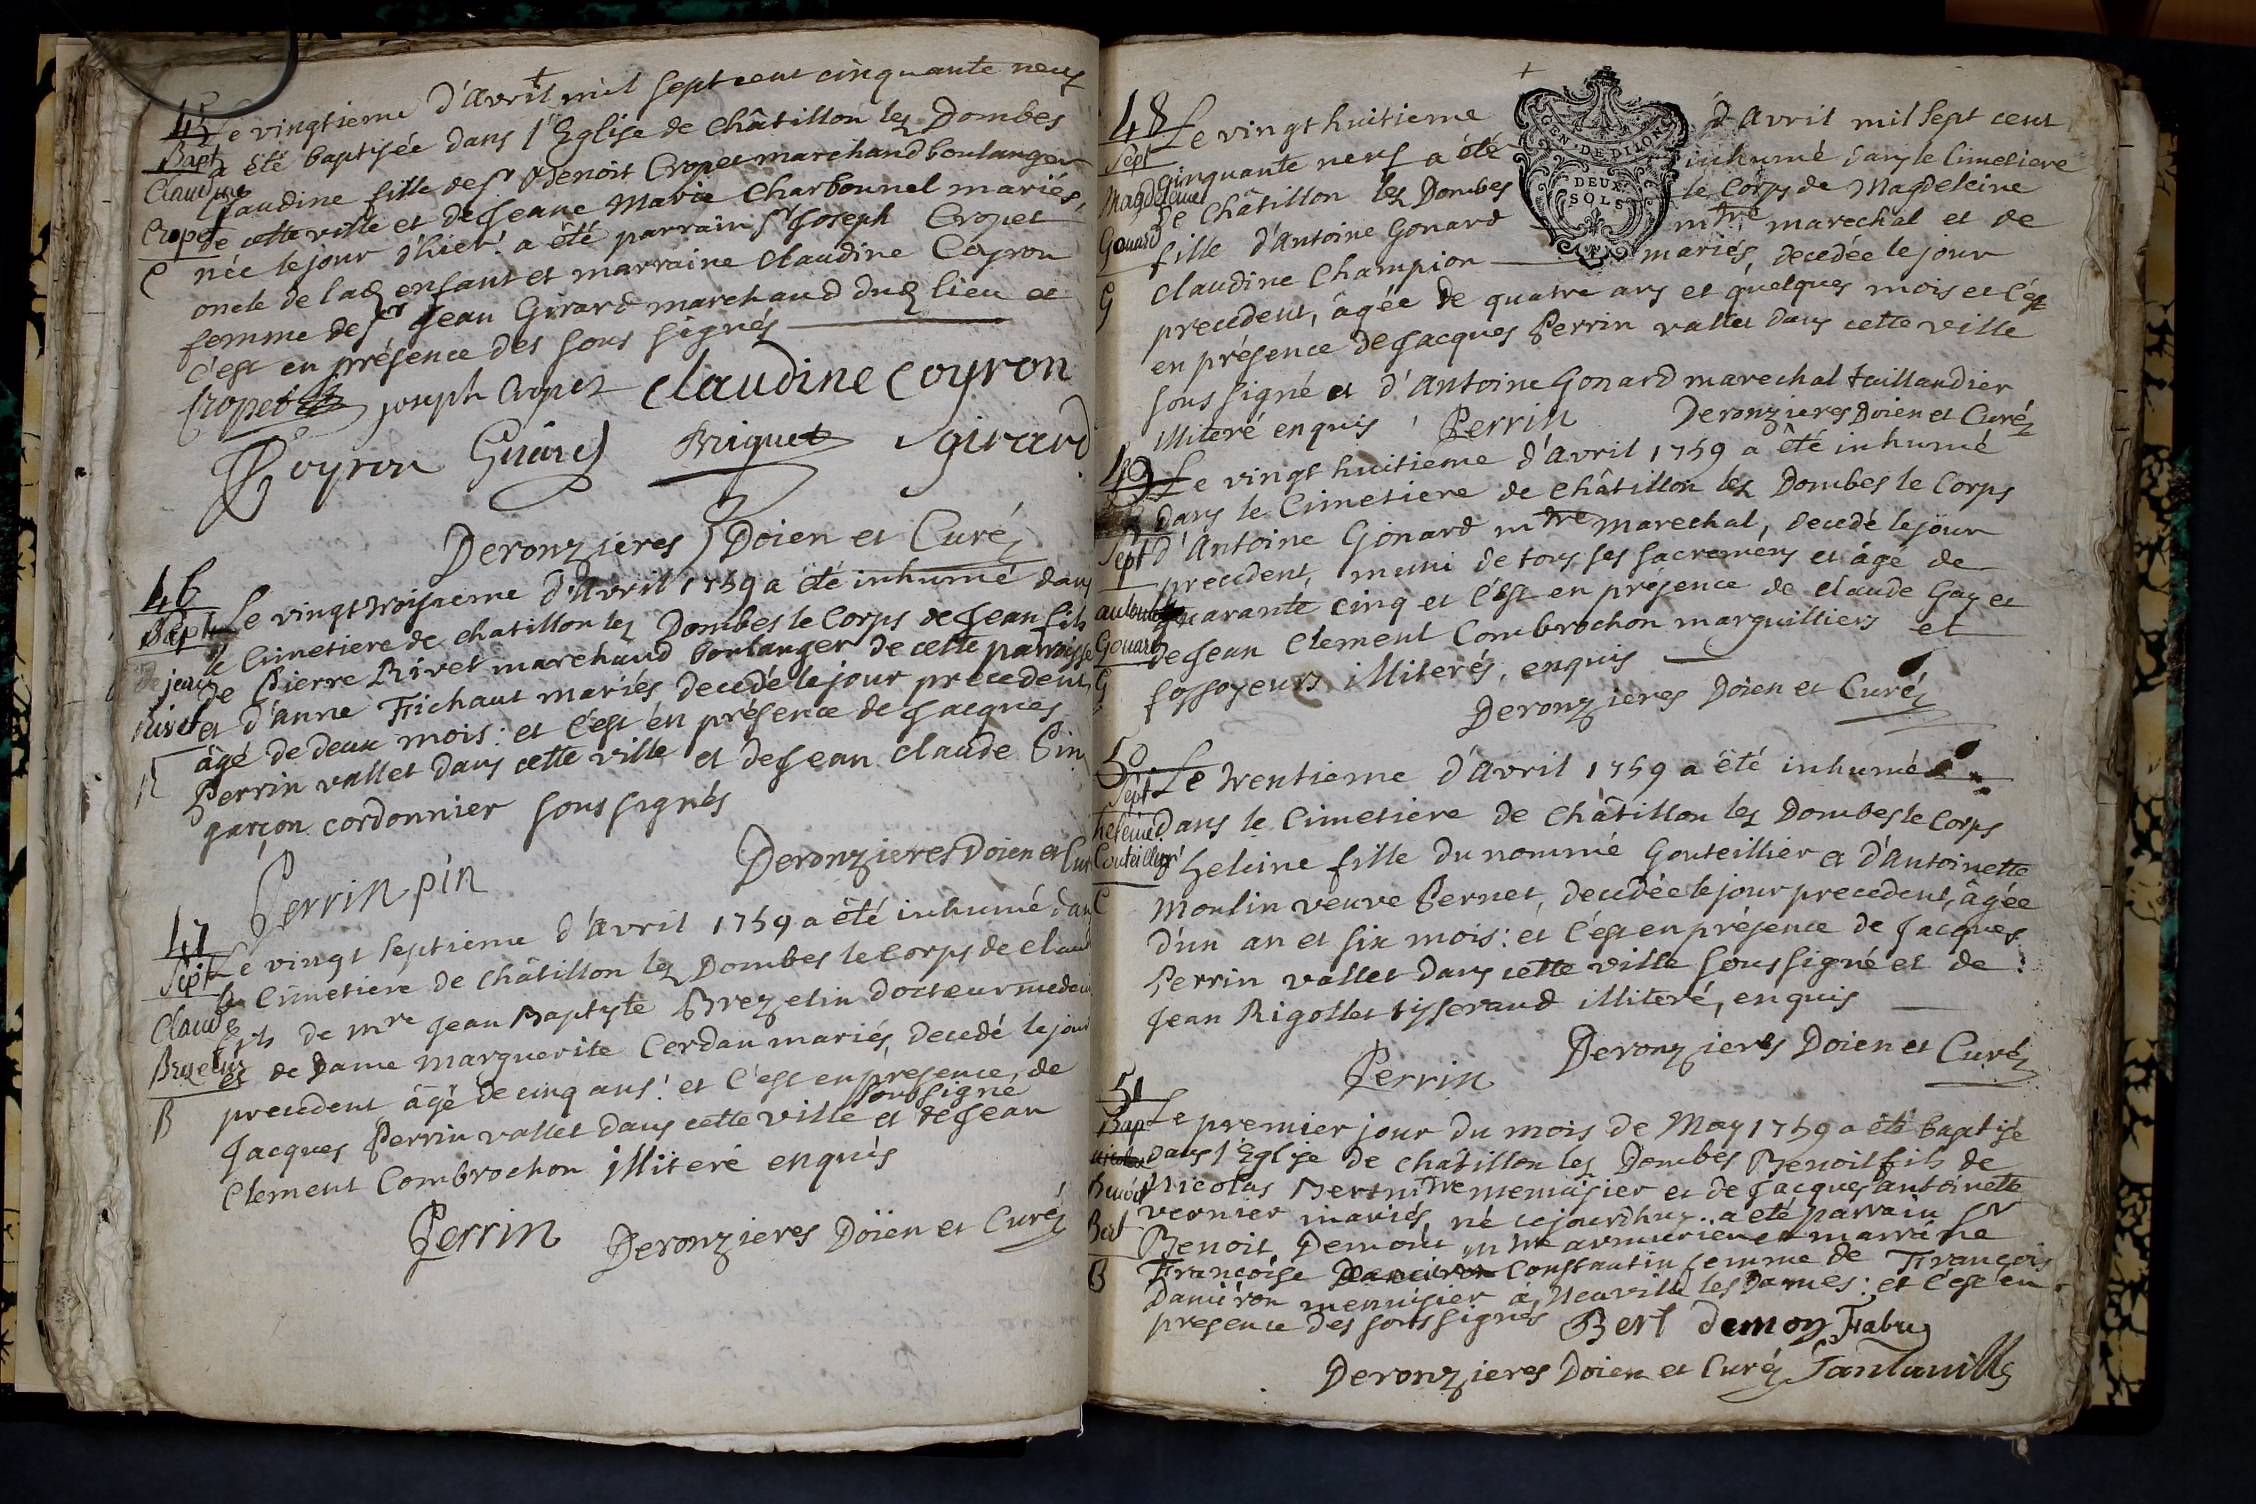 45
Bapt
Claudine
Cropet
C
Le vingtieme d'Avril mil sept cent cinquante neuf
a été baptisée dans l'Eglise de Châtillon les Dombes
Claudine fille de Sr Benoit Cropet marchand boulanger
de cette ville et de Jeane Marie Charbonnel mariés,
née le jour d'hier: a été parrain Sr Joseph Cropet
oncle de lad enfant et marraine Claudine Coyron
femme de Sr Jean Girard marchand dud lieu et
c'est en présence des sous signés
Cropet joseph Cropet claudine coyron
Coyron Girard Briquet girard
Deronzieres Doien et Curé
46
Sept
de jean
Rivet
R
Le vingt troisieme d'Avril 1759 a été inhumé dans
le Cimetiere de chatillon les Dombes le Corps de Jean fils
de Pierre Rivet marchand boulanger de cette parroisse
et d'anne Fichaut mariés decedé le jour precedent,
âgé de deux mois: et c'est en présence de Jacques
Perrin vallet dans cette ville et de Jean Claude Pin
garçon cordonnier sous signés
Perrin pin Deronzieres Doien et Cur
47
Sept
Claude
Brezelin
B
Le vingt septieme d'Avril 1759 a été inhumé dans
le Cimetiere de Châtillon les Dombes le Corps de Claud
fils de mre Jean Baptyte Brezelin docteur medeci
et de Dame Marguerite Cerdan mariés, decedé le jour
precedent âgé de cinq ans: et c'est en presence de
Jacques Perrin vallet dans cette ville sous signé et de Jean
Clement Combrochon illiteré enquis
Perrin Deronzieres Doïen et Curé
48
Sept
Magdeleine
Gonard
G
GEN. DE DIJON
DEUX
SOLS
Le vingt huitieme d'Avril mil sept cent
cinquante neuf a été inhumé dans le Cimetiere
de Châtillon les Dombes le Corps de Magdeleine
fille d'Antoine Gonard mtre marechal et de
Claudine Champion mariés, decedée le jour
precedent, âgée de quatre ans et quelques mois et c'est
en présence de Jacques Perrin vallet dans cette ville
sous signé et d'Antoine Gonard marechal taillandier
illiteré enquis Perrin Deronzieres Doien et Curé
49
Sept
Gonard
G
Le vingt huitieme d'Avril 1759 a été inhumé
dans le Cimetiere de Châtillon les Dombes le Corps
d'Antoine Gonard mtre marechal, decedé le jour
precedent, muni de tous ses sacremens et âgé de
quarante cinq et c'est en présence de Claude Gay et
de Jean Clement Combrochon marguilliers et
fossoyeurs illiterés, enquis
Deronzieres Doien et Curé
50
Sept
heleine
Couteillier
C
Le trentieme d'Avril 1759 a été inhumé
dans le Cimetiere de Châtillon les Dombes le Corps
d'heleine fille du nommé Gouteillier et d'Antoinette
Moulin veuve Pernet, decedée le jour precedent, âgée
d'un an et six mois: et c'est en présence de Jacques
Perrin vallet dans cette ville sous signé et de
Jean Rigollet tisserand illiteré, enquis
Perrin Deronzieres Doien et Curé
51
Bap
Benoit
Bert
B
Le premier jour du mois de May 1759 a été baptisé
dans l'Eglise de châtillon les Dombes Benoit fils de
Nicolas Bert mtre menuisier et de Jacques antoinette
vernier mariés, né cejourdhuy.. a été parrain Sr
Benoit Demont mtre armurier et marraine
Françoise Constantin femme de François
Daniéron menuisier à Neuville les Dames: et c'est en
presence des sous signés Bert demon Fabry
Deronzieres Doien et Curé